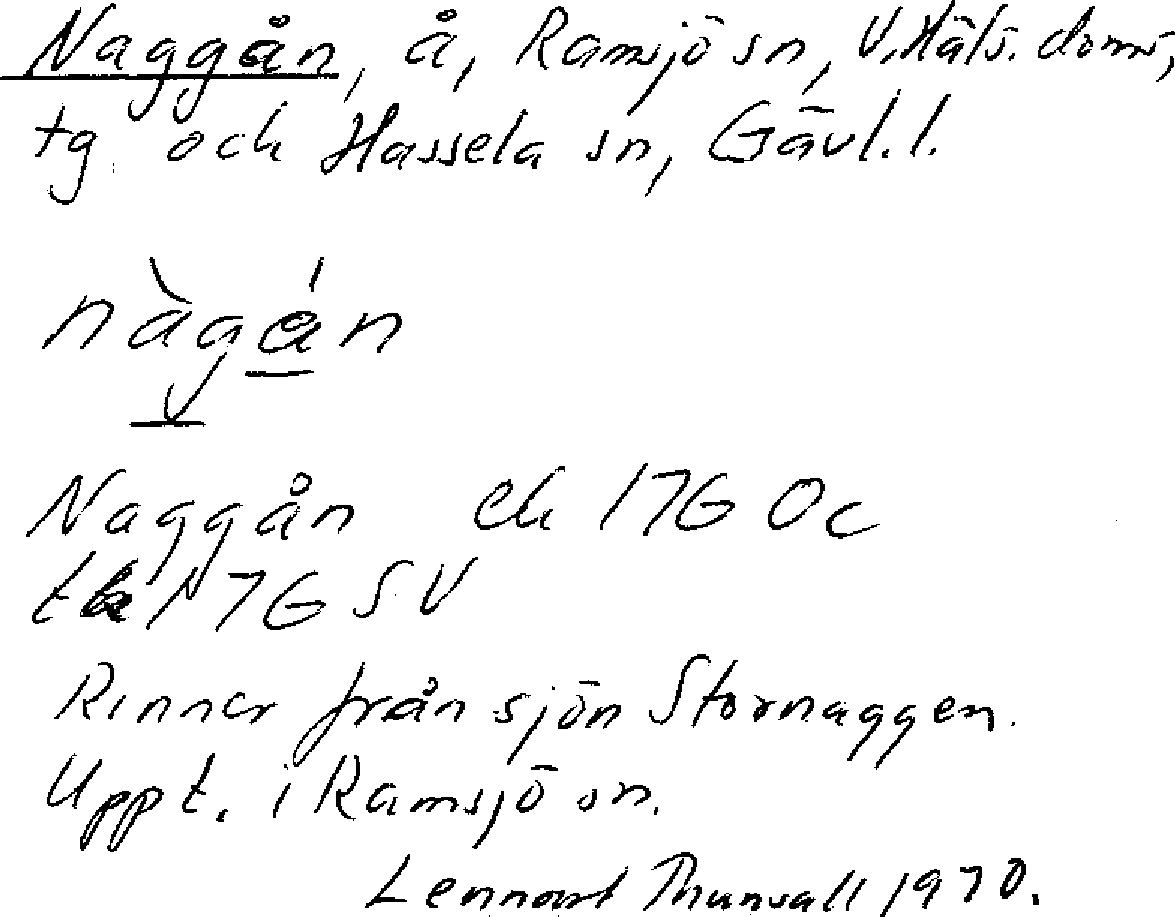 Naggån, å, Ramsjö sn, V. Häls. doms,
tg och Hassela sn, Gävl. l.
nàgán
Naggån ek 17G Oc
tk 17G SV
Rinner från sjön Stornaggen.
Uppt. i Ramsjö sn.
Lennart Thunvall 1970.